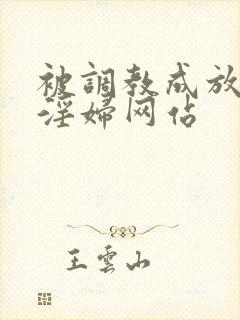 被調教成放
淫婦网佔
王雲山